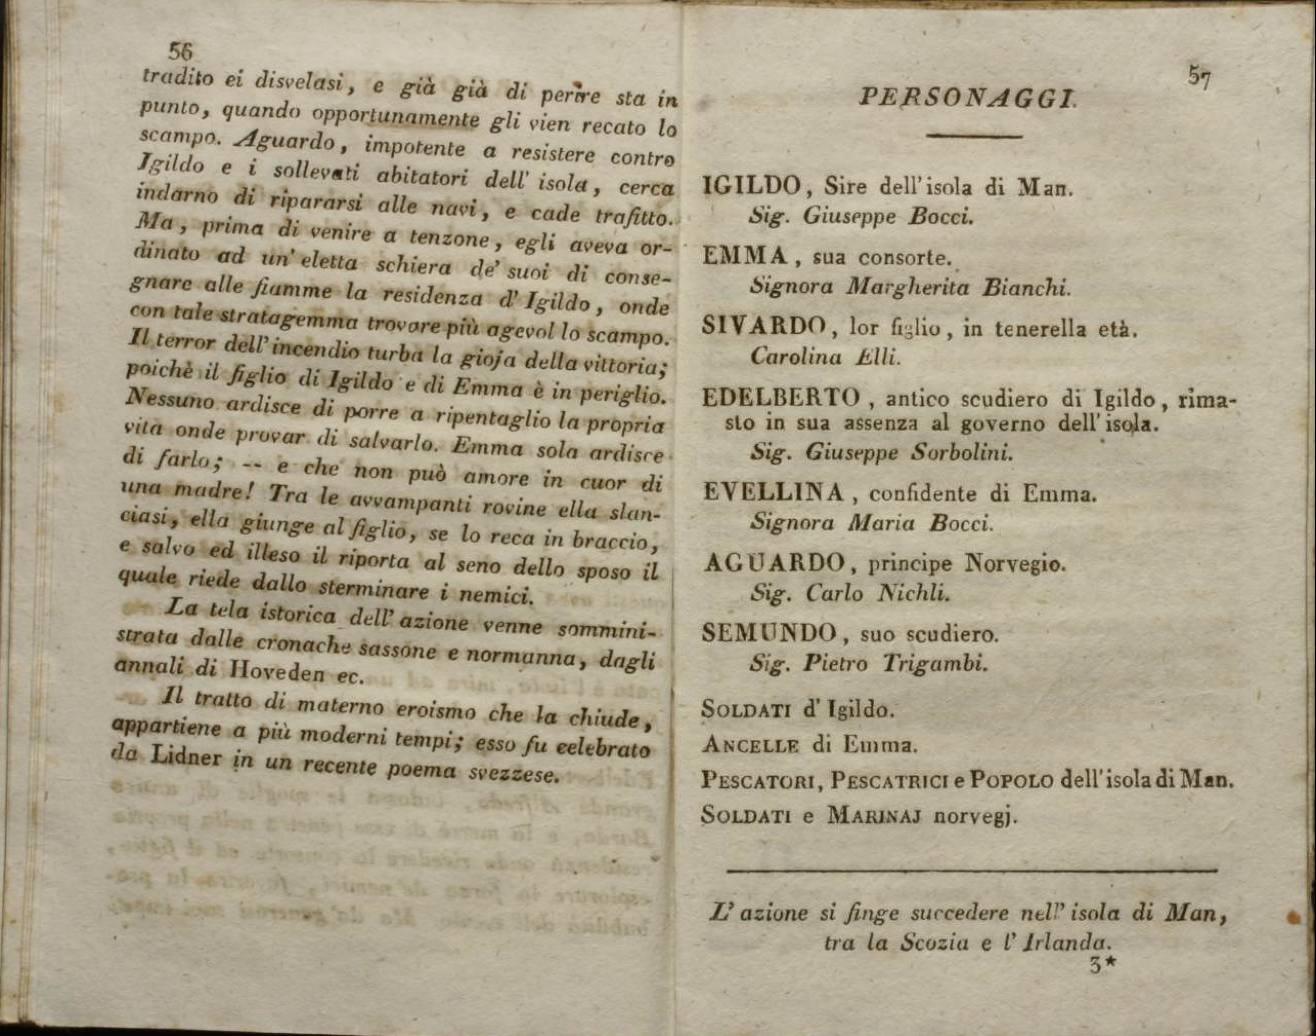 56
tradito ei disvelasi, e già già di perire sta in
punto, quando opportunamente gli vien recato lo
scampo. Aguardo, impotente a resistere contro
Igildo e i sollevati abitatori dell' isola, cerca
indarno di ripararsi alle navi, e cade trafitto.
Ma, prima di venire a tenzone, egli aveva or-
dinato ad un' eletta schiera de' suoi di conse-
gnare alle fiamme la residenza d' Igildo, onde
con tale stratagemma trovare più agevol lo scampo.
Il terror dell' incendio turba la gioja della vittoria;
poichè il figlio di Igildo e di Emma è in periglio.
Nessuno ardisce di porre a ripentaglio la propria
vita onde provar di salvarlo. Emma sola ardisce
di farlo; -- e che non può amore in cuor di
una madre! Tra le avvampanti rovine ella slan-
ciasi, ella giunge al figlio, se lo reca in braccio,
e salvo ed illeso il riporta al seno dello sposo il
quale riede dallo sterminare i nemici.
La tela istorica dell' azione venne sommini-
strata dalle cronache sassone e normanna, dagli
annali di Hoveden ec.
Il tratto di materno eroismo che la chiude,
appartiene a più moderni tempi; esso fu celebrato
da Lidner in un recente poema svezzese.
57
PERSONAGGI.
IGILDO, Sire dell' isola di Man.
Sig. Giuseppe Bocci.
EMMA, sua consorte.
Signora Margherita Bianchi.
SIVARDO, lor figlio, in tenerella età.
Carolina Elli.
EDELBERTO, antico scudiero di Igildo, rima-
sto in sua assenza al governo dell' isola.
Sig. Giuseppe Sorbolini.
EVELLINA, confidente di Emma.
Signora Maria Bocci.
AGUARDO, principe Norvegio.
Sig. Carlo Nichli.
SEMUNDO, suo scudiero.
Sig. Pietro Trigambi.
SOLDATI d' Igildo.
ANCELLE di Emma.
PESCATORI, PESCATRICI e POPOLO dell' isola di Man.
SOLDATI e MARINAJ norvegj.
L' azione si finge succedere nell' isola di Man,
tra la Scozia e l' Irlanda.
3*